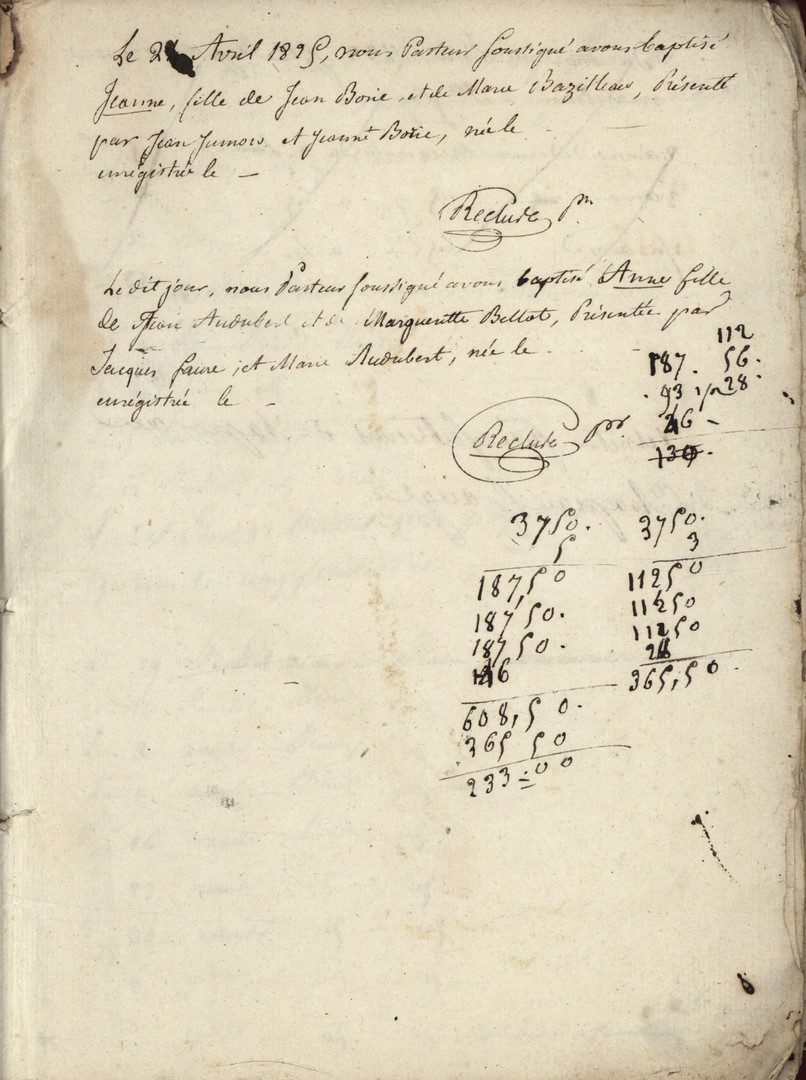 Le 24 Avril 1825, nous Pasteur soussigné avons baptisé
Jeanne, fille de Jean Borie et de Marie Bazilleau, Présenté
par Jean et Jeanne Borie, née le -
enrégistrée le -
Reclude pr
Le dit jour, nous Pasteur soussigné avons baptisé Anne fille
de Jean Audubert et de Marguerite Bellot, Présentée par
Jacques faure, et Marie Audubert, née le -
enrégistrée le -
Reclude pr
112
187. 56.
93 1/2 28.
26 -
130.
3750. 3750.
5 3
187,50 11250
187 50. 11250
187 50. 11250
46 28
608,50. 365,50.
365 50
233=00